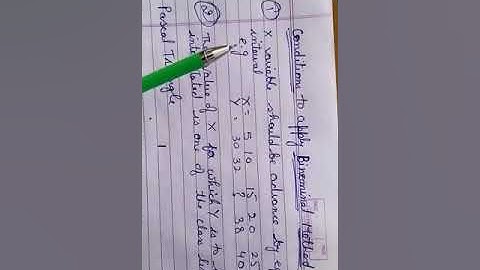 Conditions to apply Binominal Method
① X variable should be advance by eq
interval
e.g X = 5 10 15 20 25
Y = 30 32 ? 38 40
② The value of X for which Y is to
is one of the class li
Pascal Triangle
1